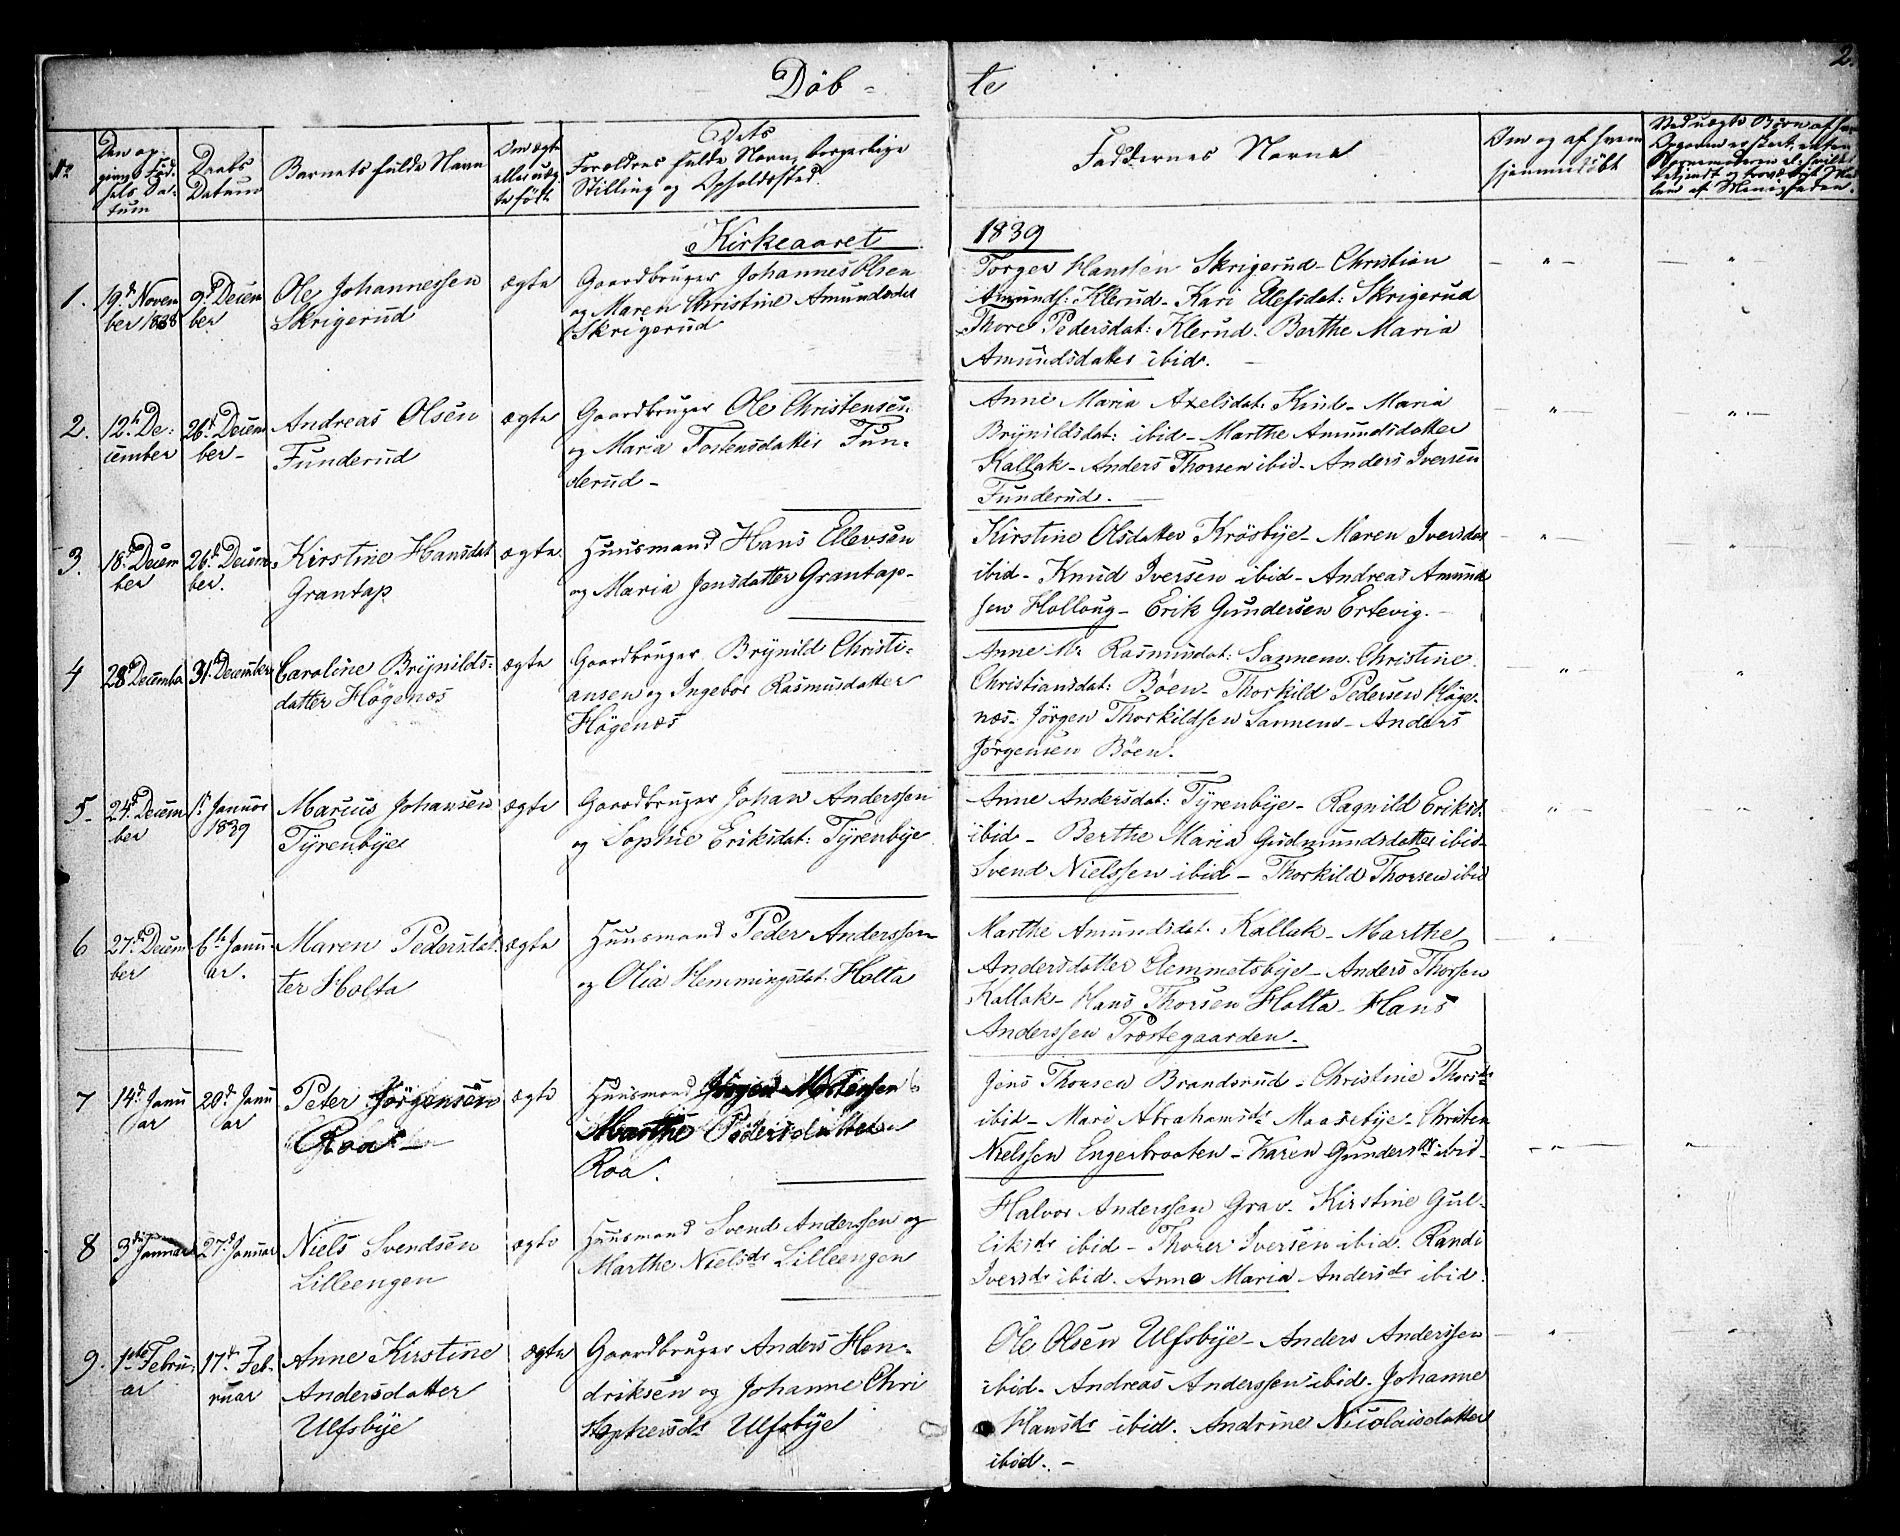 2.
Döb- te
No
Den op-
givne Fød-
sels Da-
tum
Daabs
Datum
Barnets fulde Navn
Om ægte
eller uæg-
te født
Dets
Forældres fulde Navn, borgerlige
Stilling og Opholdssted.
Faddernes Navne
Om og af hvem
hjemmedöbt
Kirkeaaret 1839
1. 19d Novem 9d Decem Ole Johannessen ægte Gaardbruger Johannes Olsen
ber 1838 ber Skrigerud og Maren Christine Amundsdat
Skrigerud
Torger Hanssen Skrigerud - Christian
Amunds: Klerud - Kari Elefsdat: Skrigerud
Thore Pedersdat: Klerud. Berthe Maria
Amundsdatter ibid.
2. 12te De- 26d Decem Andreas Olsen ægte Gaardbruger Ole Christensen
cember ber- Funderud og Maria Tostensdatter Fun-
derud-
Anne Maria Axelsdat: Kind - Maria
Brynildsdat: ibid - Marthe Amundsdatter
Kallak - Anders Thorsen ibid - Anders Iversen
Funderud.
3. 18d Decem 26d Decem Kirstine Hansdat ægte Huusmand Hans Ellevsen
ber ber. Grantap og Maria Jensdatter Grantap-
Kirstine Olsdatter Krösbye - Maren Iversdat
ibid - Knud Iversen ibid - Andreas Amund
sen Holloug - Erik Gundersen Ertevig.
4 28d December 31d December Caroline Brynilds- ægte Gaardbruger Brynild Christi-
datter Högenæs ansen og Ingebor Rasmusdatter
Högenæs
Anne M: Rasmusdat: Sannem - Christine
Christiansdat: Böen - Thorkild Pedersen Höge-
næs - Jörgen Thorkildsen Sannem - Anders
Jörgensen Böen.
5- 24d Decem 1ste Januar Marius Johansen ægte Gaardbruger Johan Anderssen
ber 1839 Tyrenbye og Sophie Eriksdat: Tyrenbye
Anne Andersdat: Tyrenbye - Ragnild Eriksd:
ibid - Berthe Maria Gudmundsdatter ibid-
Svend Nielssen ibid - Thorkild Thorsen ibid
6 27d Decem 6te Janu- Maren Pedersdat- ægte Huusmand Peder Anderssen
ber ar. ter Holta og Olia Hemmingsdat: Holta
Marthe Amundsdat: Kallak - Marthe
Andersdatter Clemmetsbye - Anders Thorsen
Kallak - Hans Thorsen Holta - Hans
Anderssen Præstegaarden.
7 14d Janu 20d Janu Peter Jörgensen ægte Huusmand Jörgen Mortensen
ar ar Roa Marthe Pedersdatter
Roa.
Jens Thorsen Brandsrud - Christine Thorsdr
ibid - Mari Abrahamsdr Maasebye - Christen
Nielssen Engerbraaten - Karen Gundersdr ibid-
8 3die Januar 27d Januar Niels Svendsen ægte Huusmand Svend Anderssen og
Lilleengen Marthe Nielsdr Lilleengen
Halvor Anderssen Grav - Kirstine Gul-
liksdr ibid - Thorer Iversen ibid. Randi
Iversdr ibid. Anne Maria Andersdr ibid.
9. 1ste Febru- 17d Feb- Anne Kirstine ægte Gaardbruger Anders Hen-
ar ruar Andersdatter driksen og Johanne Chri
Ulfsbye stophersdr Ulfsbye
Ole Olsen Ulfsbye - Anders Anderssen
ibid - Andreas Anderssen ibid. Johanne
Hansdr ibid. Andrine Nicolaisdatter
ibid. -